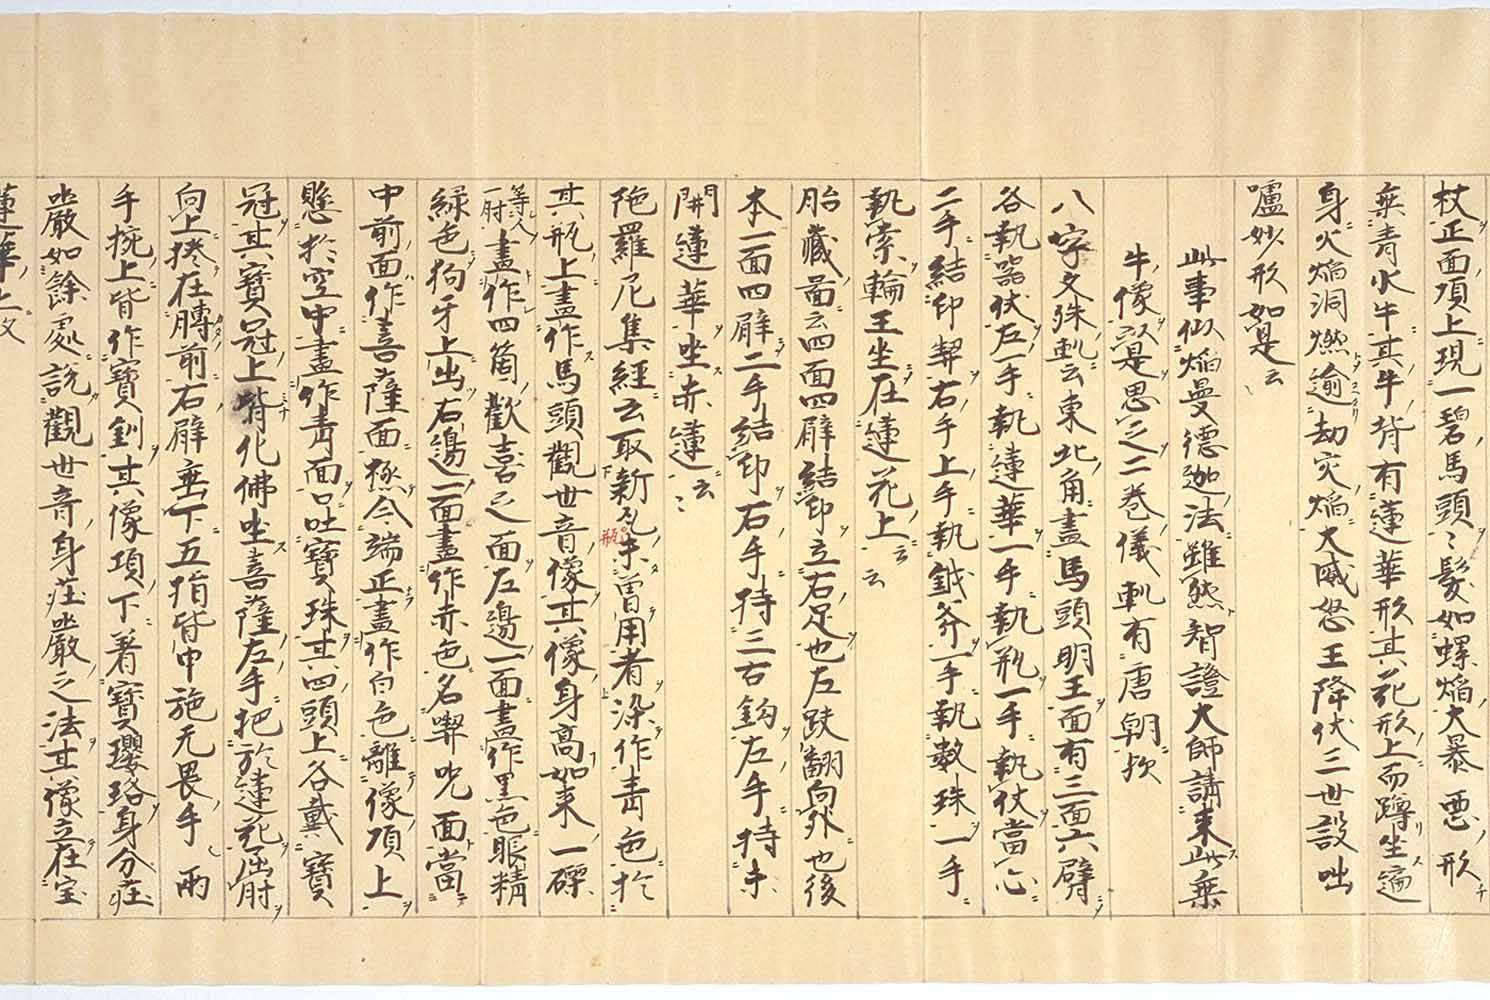 杖正面頂上現一碧馬頭〻髪如螺焔大暴惡形
乗青水牛其牛背有蓮華形其花形上而蹲坐遍
身火焔洞燃逾劫灾焔大威怒王降伏三世設咄
嚧妙形如是云〻
此事似焔曼德迦法雖然智證大師請来此乗
牛像以是思之二巻儀軌有唐朝欤
八字文殊軌云東北角畫馬頭明王面有三面六臂
各執器伏左一手執蓮華一手執瓶一手執仗當心
二手結印契右手上手執鉞斧一手執數珠一手
執索輪王坐在蓮花上云云
胎藏啚云四面四臂結印立右足也左跌翻向外也後
本一面四臂二手結印右手持三古鈎左手持未
開蓮華坐赤蓮云〻
陁羅尼集經云取新瓦未曽用者染作青色於
瓶
其瓶上畫作馬頭觀世音像其像身高如来一磔
等人一肘畫作四箇歡喜之面左邊一面畫作黒色眼精
緑色狗牙上出右邊一面畫作赤色名喫呪面當
中前面作菩薩面極令端正畫作白色離像項上
懸於空中畫作青面口吐寳珠其四頭上各戴寳
冠其寳冠上皆化佛坐菩薩左手把於蓮花屈肘
向上捲在膊前右臂垂下五指皆申施无畏手兩
手捥上皆作寳釧其像項下著寳瓔珞身分莊
嚴如餘處説觀世音身莊嚴之法其像立在宝
蓮華上文